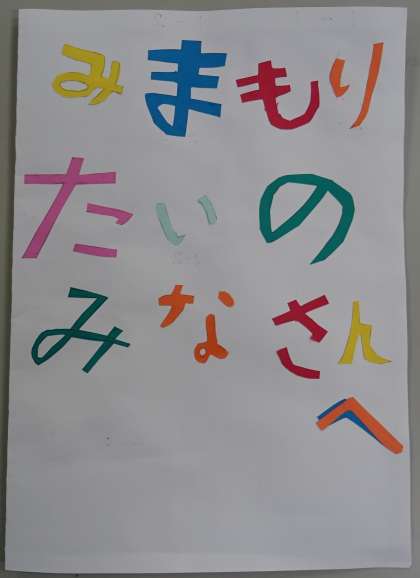 みまもり
たいの
みなさん
へ